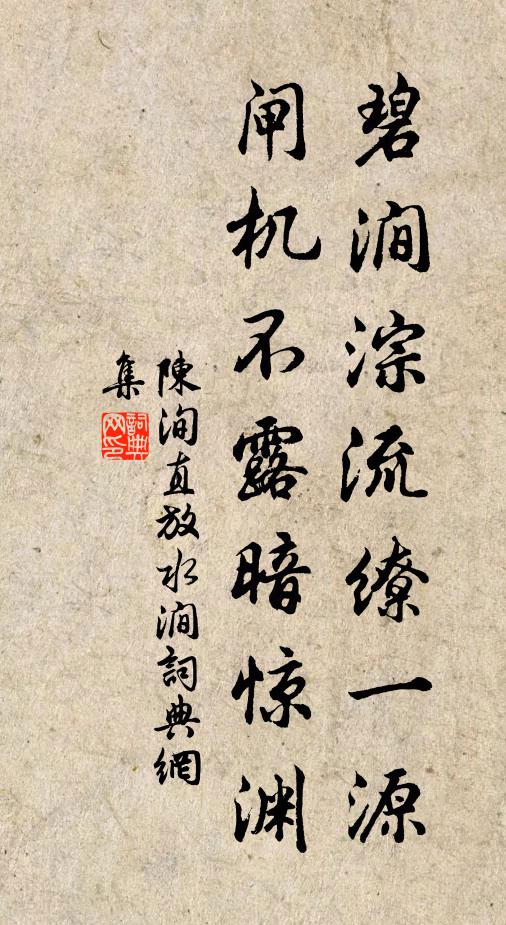 碧涧淙流缭一源
闸机不露暗惊渊
陳洵直放水澗詞典網
集
詞典网印